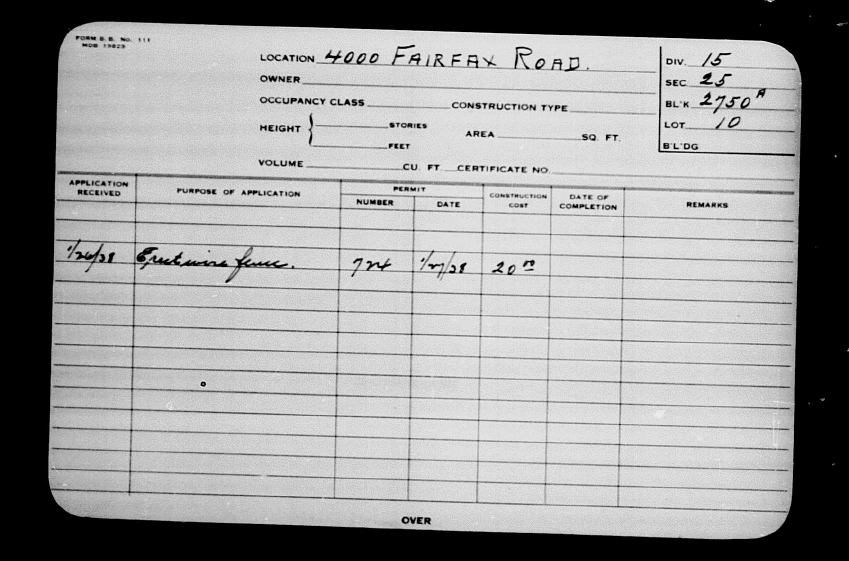 FORM B. B. No. 111
MDB 19829
LOCATION 4000 FAIRFAX ROAD.
OWNER
OCCUPANCY CLASS CONSTRUCTION TYPE
HEIGHT { STORIES AREA SQ. FT.
FEET
VOLUME CU. FT CERTIFICATE NO.
DIV. 15
SEC 25
BL'K 2750 A
LOT 10
B'L'DG
APPLICATION RECEIVED PURPOSE OF APPLICATION PERMIT NUMBER DATE CONSTRUCTION COST DATE OF COMPLETION REMARKS
1/26/38 Erect wire fence. 724 1/27/38 20 00
OVER